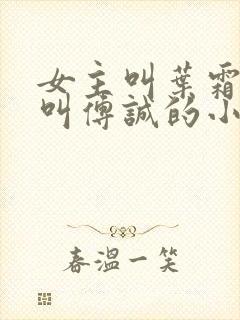 女主叫葉霜
叫傅誠的小
春溫一笑